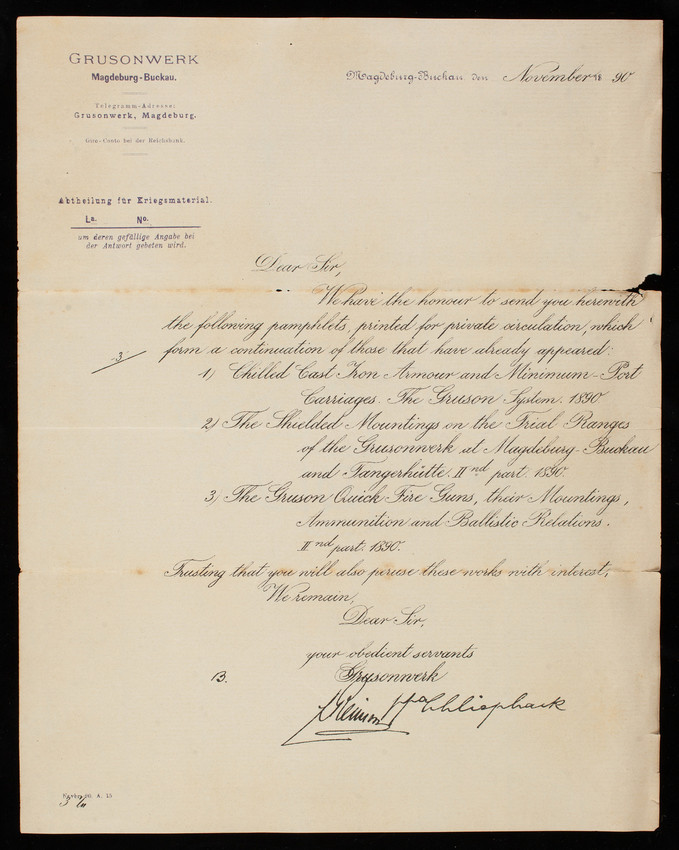 GRUSONWERK
Magdeburg-Buckau.
Telegramm-Adresse:
Grusonwerk, Magdeburg.
Giro-Conto bei der Reichsbank.
Magdeburg-Buckau, den November 18 90
Abtheilung für Kriegsmaterial.
La. No.
um deren gefällige Angabe bei
der Antwort gebeten wird.
Dear Sir,
We have the honour to send you herewith
the following pamphlets, printed for private circulation, which
form a continuation of those that have already appeared:
-3-
1) Chilled Cast Iron Armour and Minimum-Port
Carriages. The Gruson System. 1890
2) The Shielded Mountings on the Trial Ranges
of the Grusonwerk at Magdeburg-Buckau
and Tangerhütte. IInd part. 1890.
3) The Gruson Quick Fire Guns, their Mountings,
Ammunition and Ballistic Relations.
IInd part. 1890.
Trusting that you will also peruse these works with interest,
We remain,
Dear Sir,
your obedient servants
B. Grusonwerk